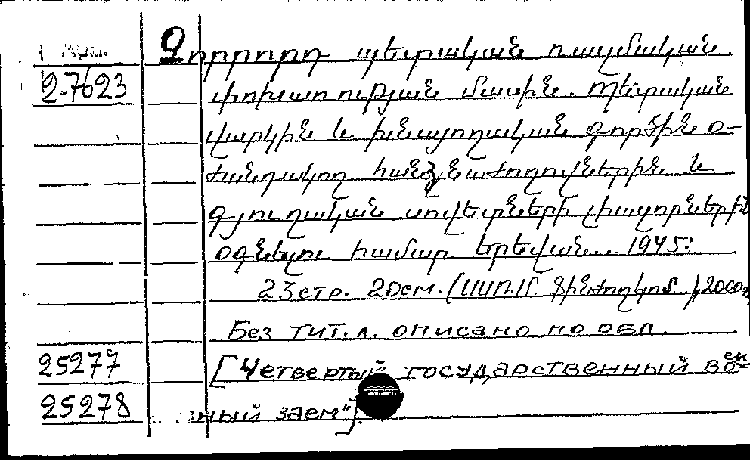 2-7623
Չորրորդ պետական ռազմական
փոխառության մասին. Պետական
վարկին և խնայողական գործին օ-
ժանդակող հանձնաժողովներին և
գյուղական սովետների
օգնելու համար Երեվան. 1945:
23 стр. 20 см. (ՍՍՌՄ Ֆինժողկոմ) 2000
Без тит. л. описано по обл.
25277 [Четвертый государственный во-
25278 ный заем"]